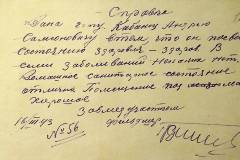 Справка
Дана гр-ну Кабанец Андрею
Самсоновичу в том, что он по свое
состоянию здоровья – здоров. В
семи заболеваний никаких нет.
Домашнее санитарное состояние
отлична Помещение под
хорошое
Завмедучастком
16/III 43 фельдшер
№ 56